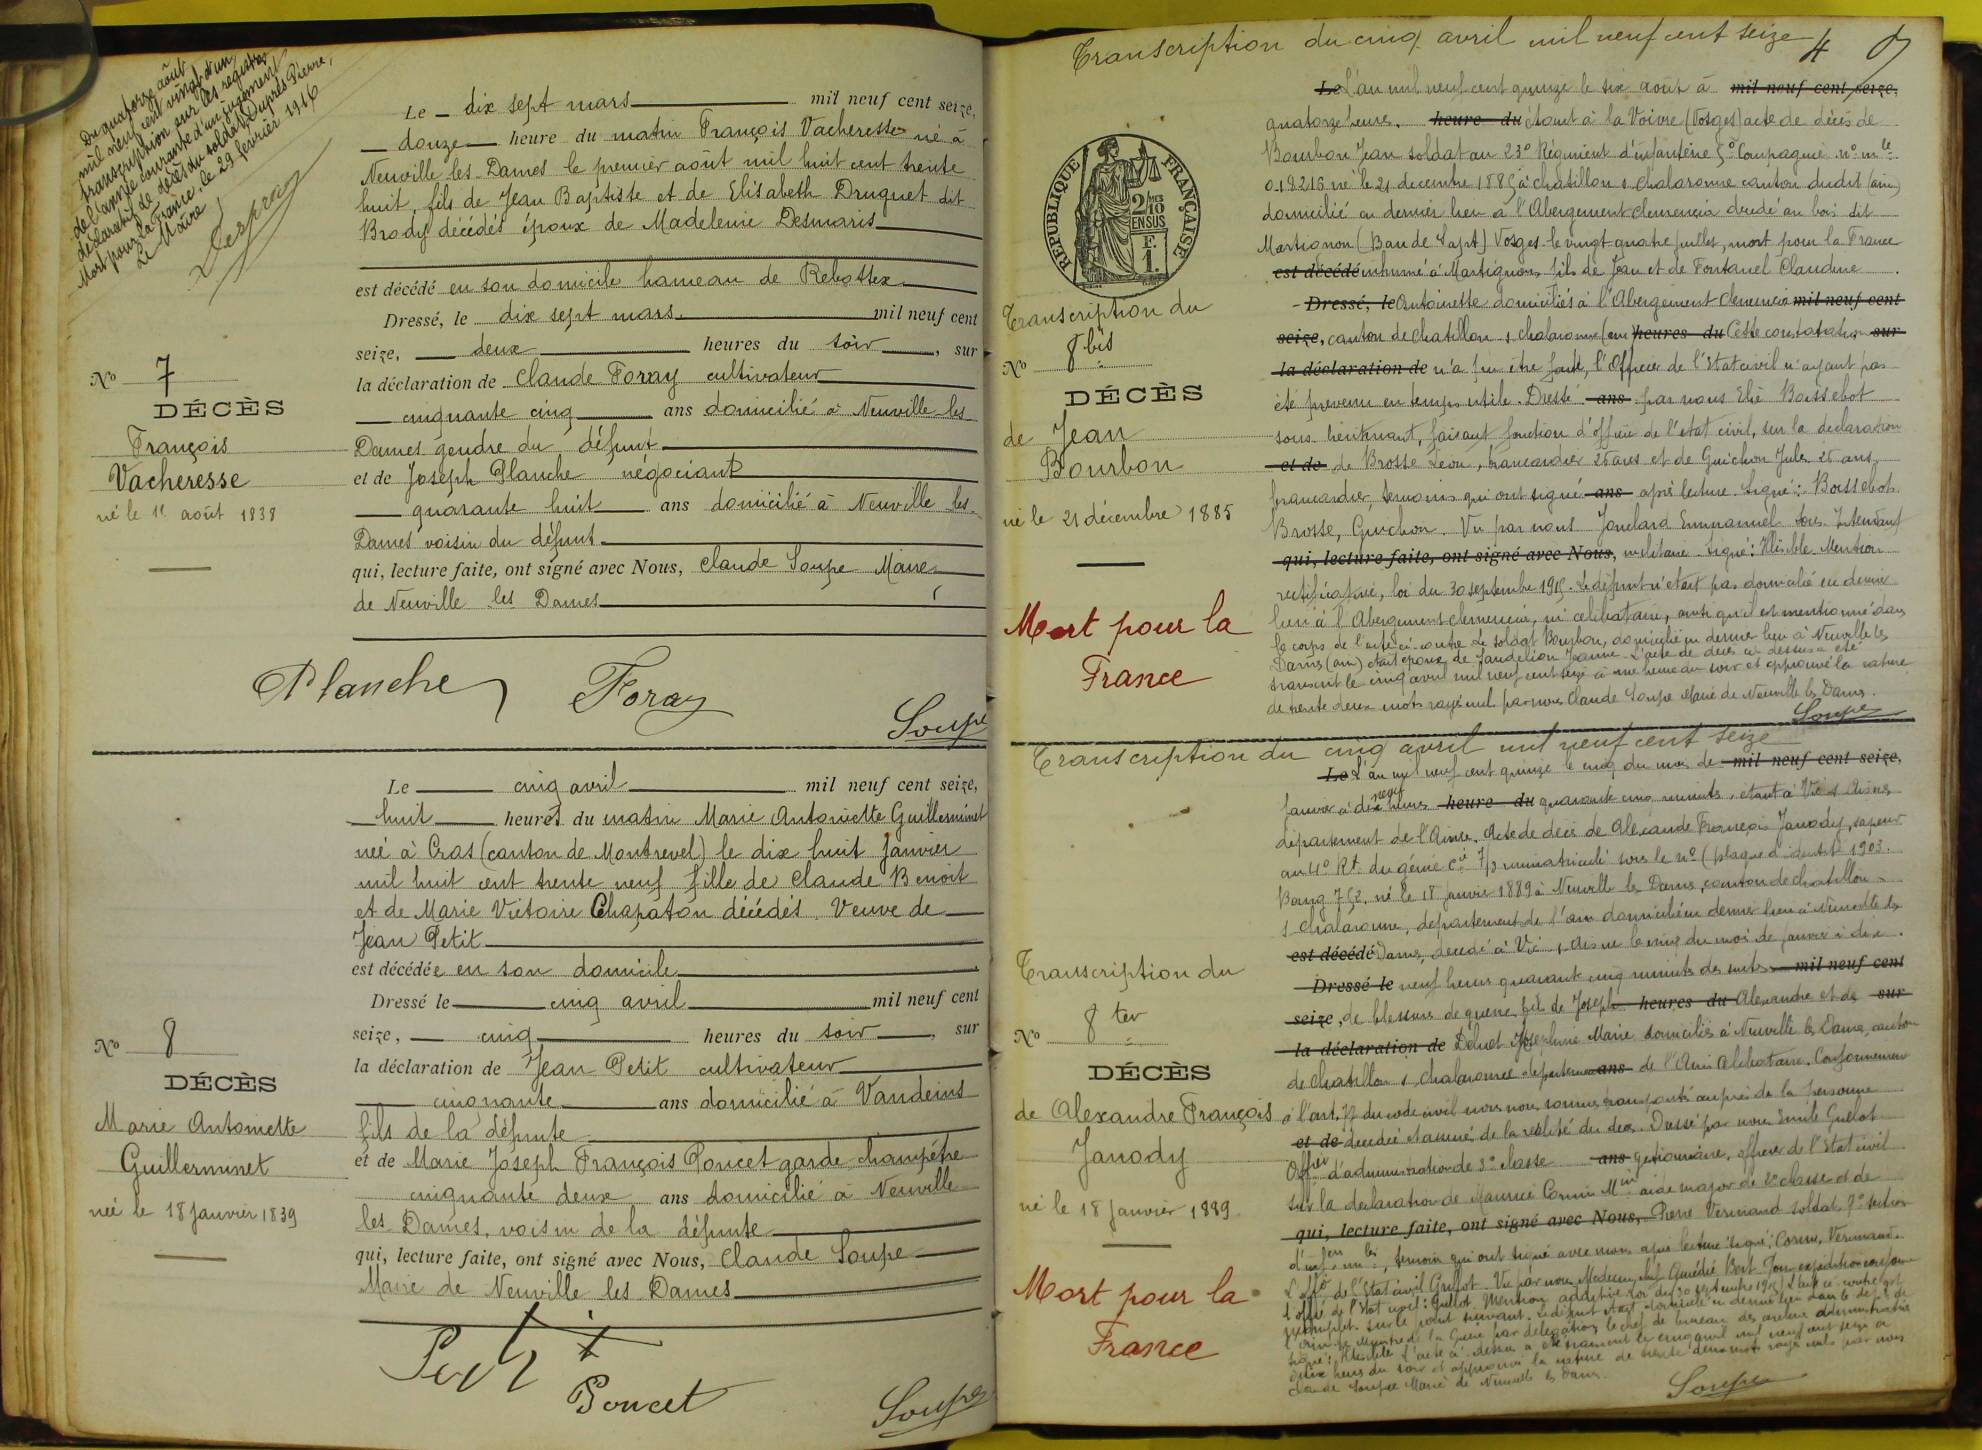 Du quatorze août
mil neuf cent vingt un
transcription sur les registres
de l'année courante d'un jugement
déclaratif de décès du soldat Duprès Pierre,
Mort pour la France le 29 février 1916
Le Maire
Le dix sept mars mil neuf cent seize,
douze heure du matin François Vacheresse né à
Neuville les Dames le premier août mil huit cent trente
huit fils de Jean Baptiste et de Elisabeth Druguet dit
Brody décédés époux de Madeleine Desmaris
est décédé en son domicile hameau de
Dressé, le dix sept mars mil neuf cent
seize, deux heures du soir, sur
la déclaration de Claude Foray cultivateur
cinquante cinq ans domicilié à Neuville les
Dames gendre du défunt
et de Joseph Planche négociant
quarante huit ans domicilié à Neuville les
Dames voisin du défunt
qui, lecture faite, ont signé avec Nous, Claude Soupe Maire
de Neuville les Dames
Planche Foray Soupe
No 7
DÉCÈS
François
Vacheresse
né le 1er août 1838
Le cinq avril mil neuf cent seize,
huit heures du matin Marie Antoinette Guillerminet
née à Cras (canton de Montrevel) le dix huit Janvier
mil huit cent trente neuf fille de Claude Benoit
et de Marie Victoire Chapaton décédés. Veuve de
Jean Petit
est décédée en son domicile
Dressé le cinq avril mil neuf cent
seize, cinq heures du soir, sur
la déclaration de Jean Petit cultivateur
cinquante ans domicilié à Vandeins
fils de la défunte
et de Marie Joseph François Poncet garde champêtre
cinquante deux ans domicilié à Neuville
les Dames, voisin de la défunte
qui, lecture faite, ont signé avec Nous, Claude Soupe
Maire de Neuville les Dames
Petit
Poncet Soupe
No 8
DÉCÈS
Marie Antoinette
Guillerminet
née le 18 Janvier 1839
Transcription du cinq avril mil neuf cent seize 4
Le L'an mil neuf cent quinze le six août à mil neuf cent seize,
quatorze heures, heure du étant à la Voivre (Vosges) acte de décès de
Bourbon Jean soldat au 23e Régiment d'infanterie 5e Compagnie no mle
019216 né le 21 décembre 1885 à Chatillon s Chalaronne canton dudit (ain)
domicilié en dernier lieu à l'Abergement Clemencia décédé au bois dit
Martignon (Ban de Sapt) Vosges le vingt quatre juillet, mort pour la France
est décédé inhumé à Martignon, fils de Jean et de Fontanel Claudine
Dressé, le Antoinette domiciliés à l'Abergement Clemencia mil neuf cent
seize, canton de Chatillon s Chalaronne (ain) heures du Cette constatation sur
la déclaration de n'a pu être faite, l'Officier de l'Etat civil n'ayant pas
été prévenu en temps utile. Dressé ans par nous Elie Boissebot
sous lieutenant, faisant fonction d'officier de l'état civil, sur la déclaration
et de de Brosse Léon, brancardier 26 ans et de Guichon Jules 26 ans,
brancardier, témoins qui ont signé ans après lecture. Signé : Boissebot
Brosse, Guichon. Vu par nous Jonelard Emmanuel sous Intendant
qui, lecture faite, ont signé avec Nous, militaire. Signé : Illisible. Mention
rectificative, loi du 30 septembre 1915. Le défunt n'était pas domicilié en dernier
lieu à l'Abergement Clemencia, ni célibataire, ainsi qu'il est mentionné dans
le corps de l'acte ci-contre. Le soldat Bourbon, domicilié en dernier lieu à Neuville les
Dames (ain) était époux de Jandelion Jeanne. L'acte de décès ci-dessus a été
transcrit le cinq avril mil neuf cent seize à une heure du soir et approuvé la rature
de trente deux mots rayés nuls par nous Claude Soupe Maire de Neuville les Dames.
Soupe
RÉPUBLIQUE FRANÇAISE
2/10
EN SUS
F.
1.
Transcription du
No 8 bis
DÉCÈS
de Jean
Bourbon
né le 21 décembre 1885
Mort pour la
France
Transcription du cinq avril mil neuf cent seize
Le L'an mil neuf cent quinze le cinq du mois de mil neuf cent seize,
Janvier à dix neuf heures heure du quarante cinq minutes, étant à Vic s Aisne
département de l'Aisne. Acte de décès de Alexandre François Janody, sapeur
au 4e Rt du génie Cie 7/3 immatriculé sous le no (plaque d'identité 1903.
Bourg 752, né le 18 janvier 1889 à Neuville les Dames, canton de Chatillon
s Chalaronne, département de l'ain domicilié en dernier lieu à Neuville les
est décédé Dames, décédé à Vic s Aisne le cinq du mois de janvier à dix
Dressé le neuf heures quarante cinq minutes des suites mil neuf cent
seize, de blessures de guerre, fils de Joseph heures du Alexandre et de sur
la déclaration de Josephine Marie domiciliés à Neuville les Dames, canton
de Chatillon s Chalaronne département ans de l'Ain célibataire. Conformément
à l'art. 77 du code civil nous nous sommes transportés auprès de la personne
et de décédée et assuré de la réalité du décès. Dressé par nous Emile Guillot
Offer d'administration de 3e classe ans gestionnaire, officier de l'Etat civil
sur la déclaration de Maurice Cornu Min aide major de 2e classe et de
qui, lecture faite, ont signé avec Nous, Pierre Vermand soldat 7e section
d'infirmiers, témoins qui ont signé avec nous après lecture. Signé : Cornu, Vermand.
claude Soupe Maire de Neuville les Dames.
Soupe
Transcription du
No 8 ter
DÉCÈS
de Alexandre François
Janody
né le 18 Janvier 1889
Mort pour la
France